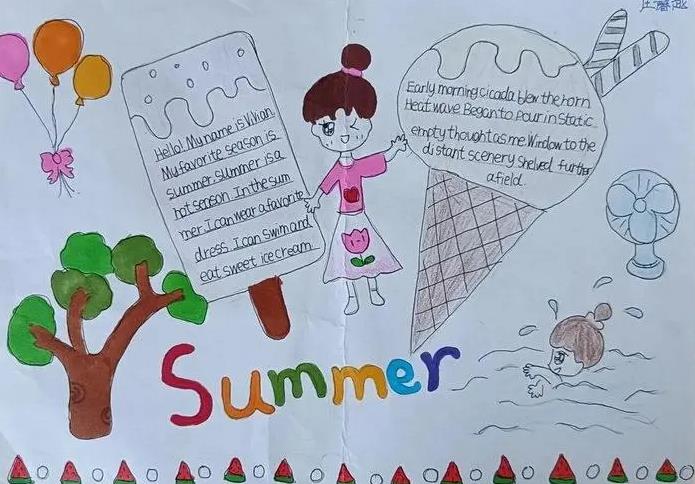 Hello! My name is Vivian.
My favorite season is
summer. summer is a
hot season. In the sum
mer. I can wear a favorite
dress. I can swim and
eat sweet ice cream.
Early morning cicada blew the horn
Heat wave Began to Pour in Static
empty thought as me Window to the
distant scenery shelved further
afield.
Summer